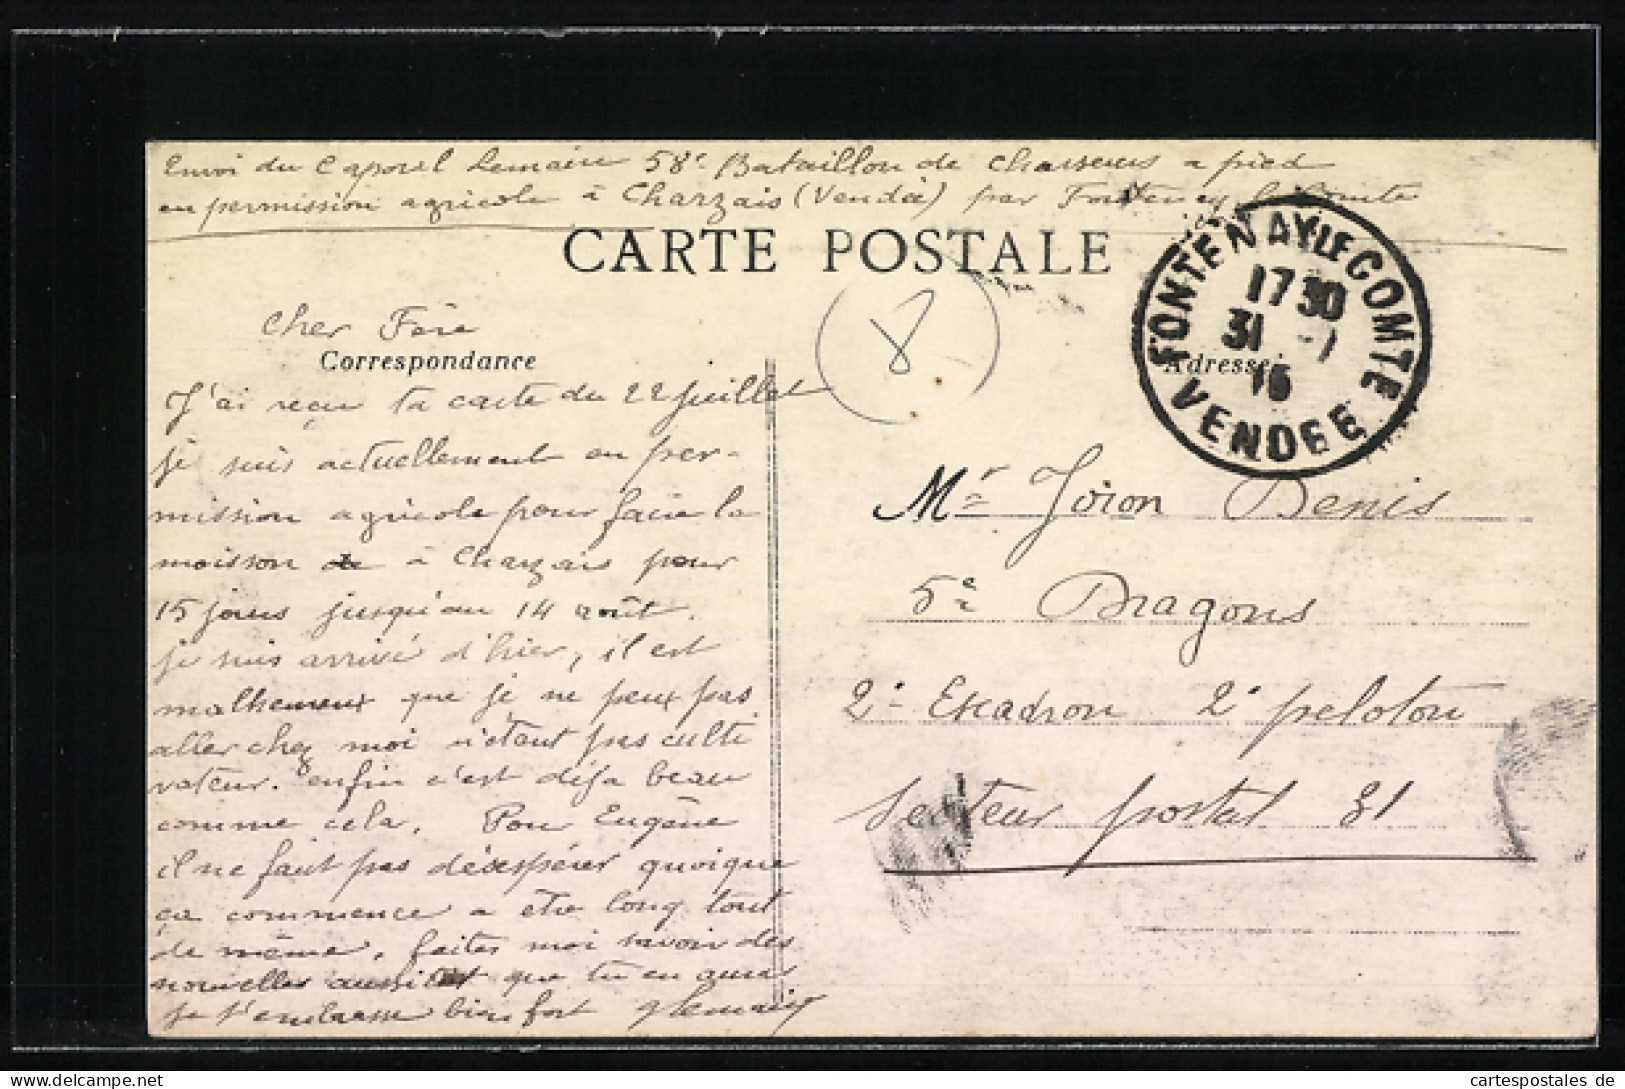 Envoi du Caporal Lemaire 58e Bataillon de Chasseurs a pied
en permission agricole à Charzais (Vendée) par Fontenay le Comte
CARTE POSTALE
FONTENAY LE COMTE
17 30
31 -7
VENDEE
8
Cher
Correspondance
Adresse
J'ai reçu ta carte du 22 juillet
je suis actuellement en per-
mission agricole pour faire la
moisson à Charzais pour
15 jours jusqu'au 14 août.
je suis arrivé d'hier, il est
malheureux que je ne peux pas
aller chez moi n'étant pas culti
vateur. enfin c'est déja beau
comme cela. Pour Eugène
il ne faut pas désespérer quoique
ça commence a etre long tout
de même. faites moi savoir des
nouvelles aussitôt que tu en auras
je t'embrasse bien fort Lemaire
Mr Joron Denis
5e Dragons
2e Escadron 2e peloton
Secteur postal 31
cartespostales de